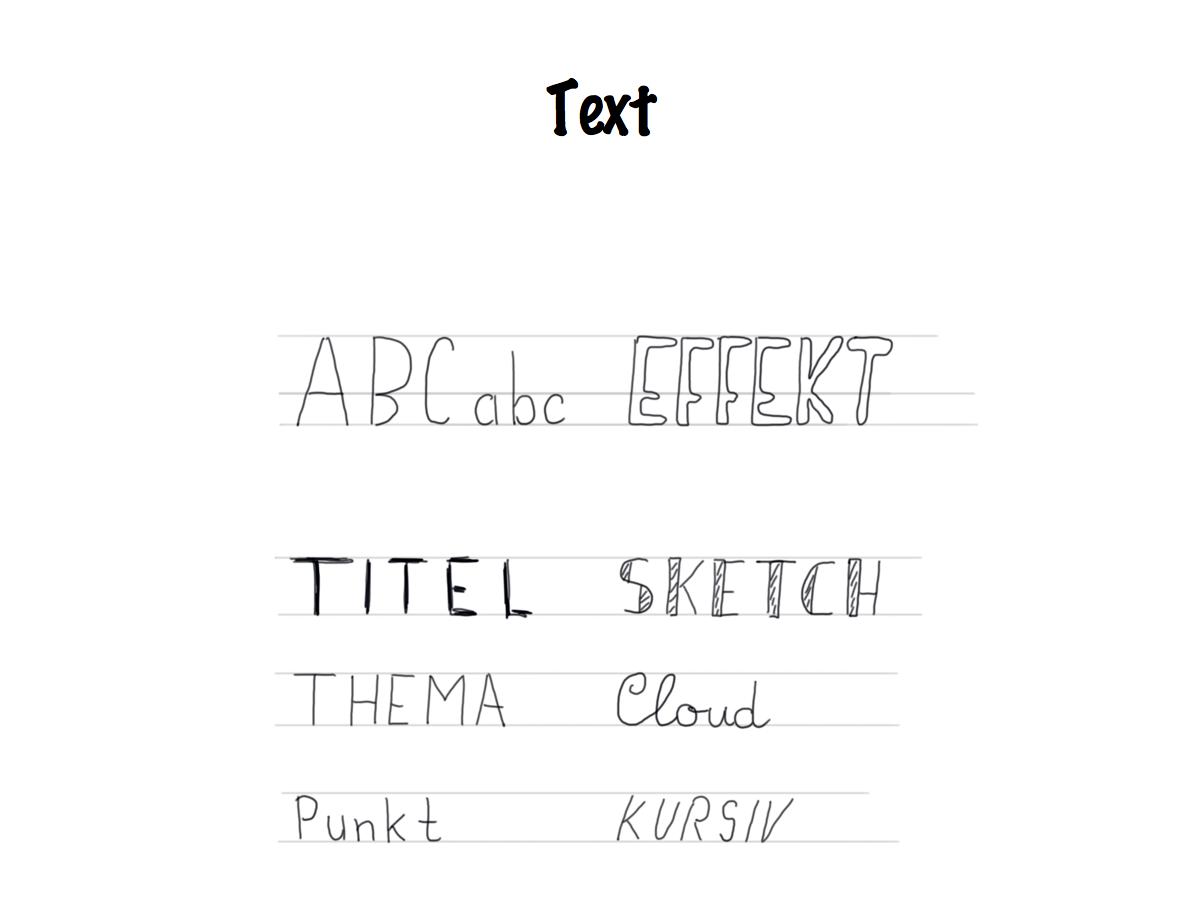 Text
ABC abc EFFEKT
TITEL SKETCH
THEMA Cloud
Punkt KURSIV